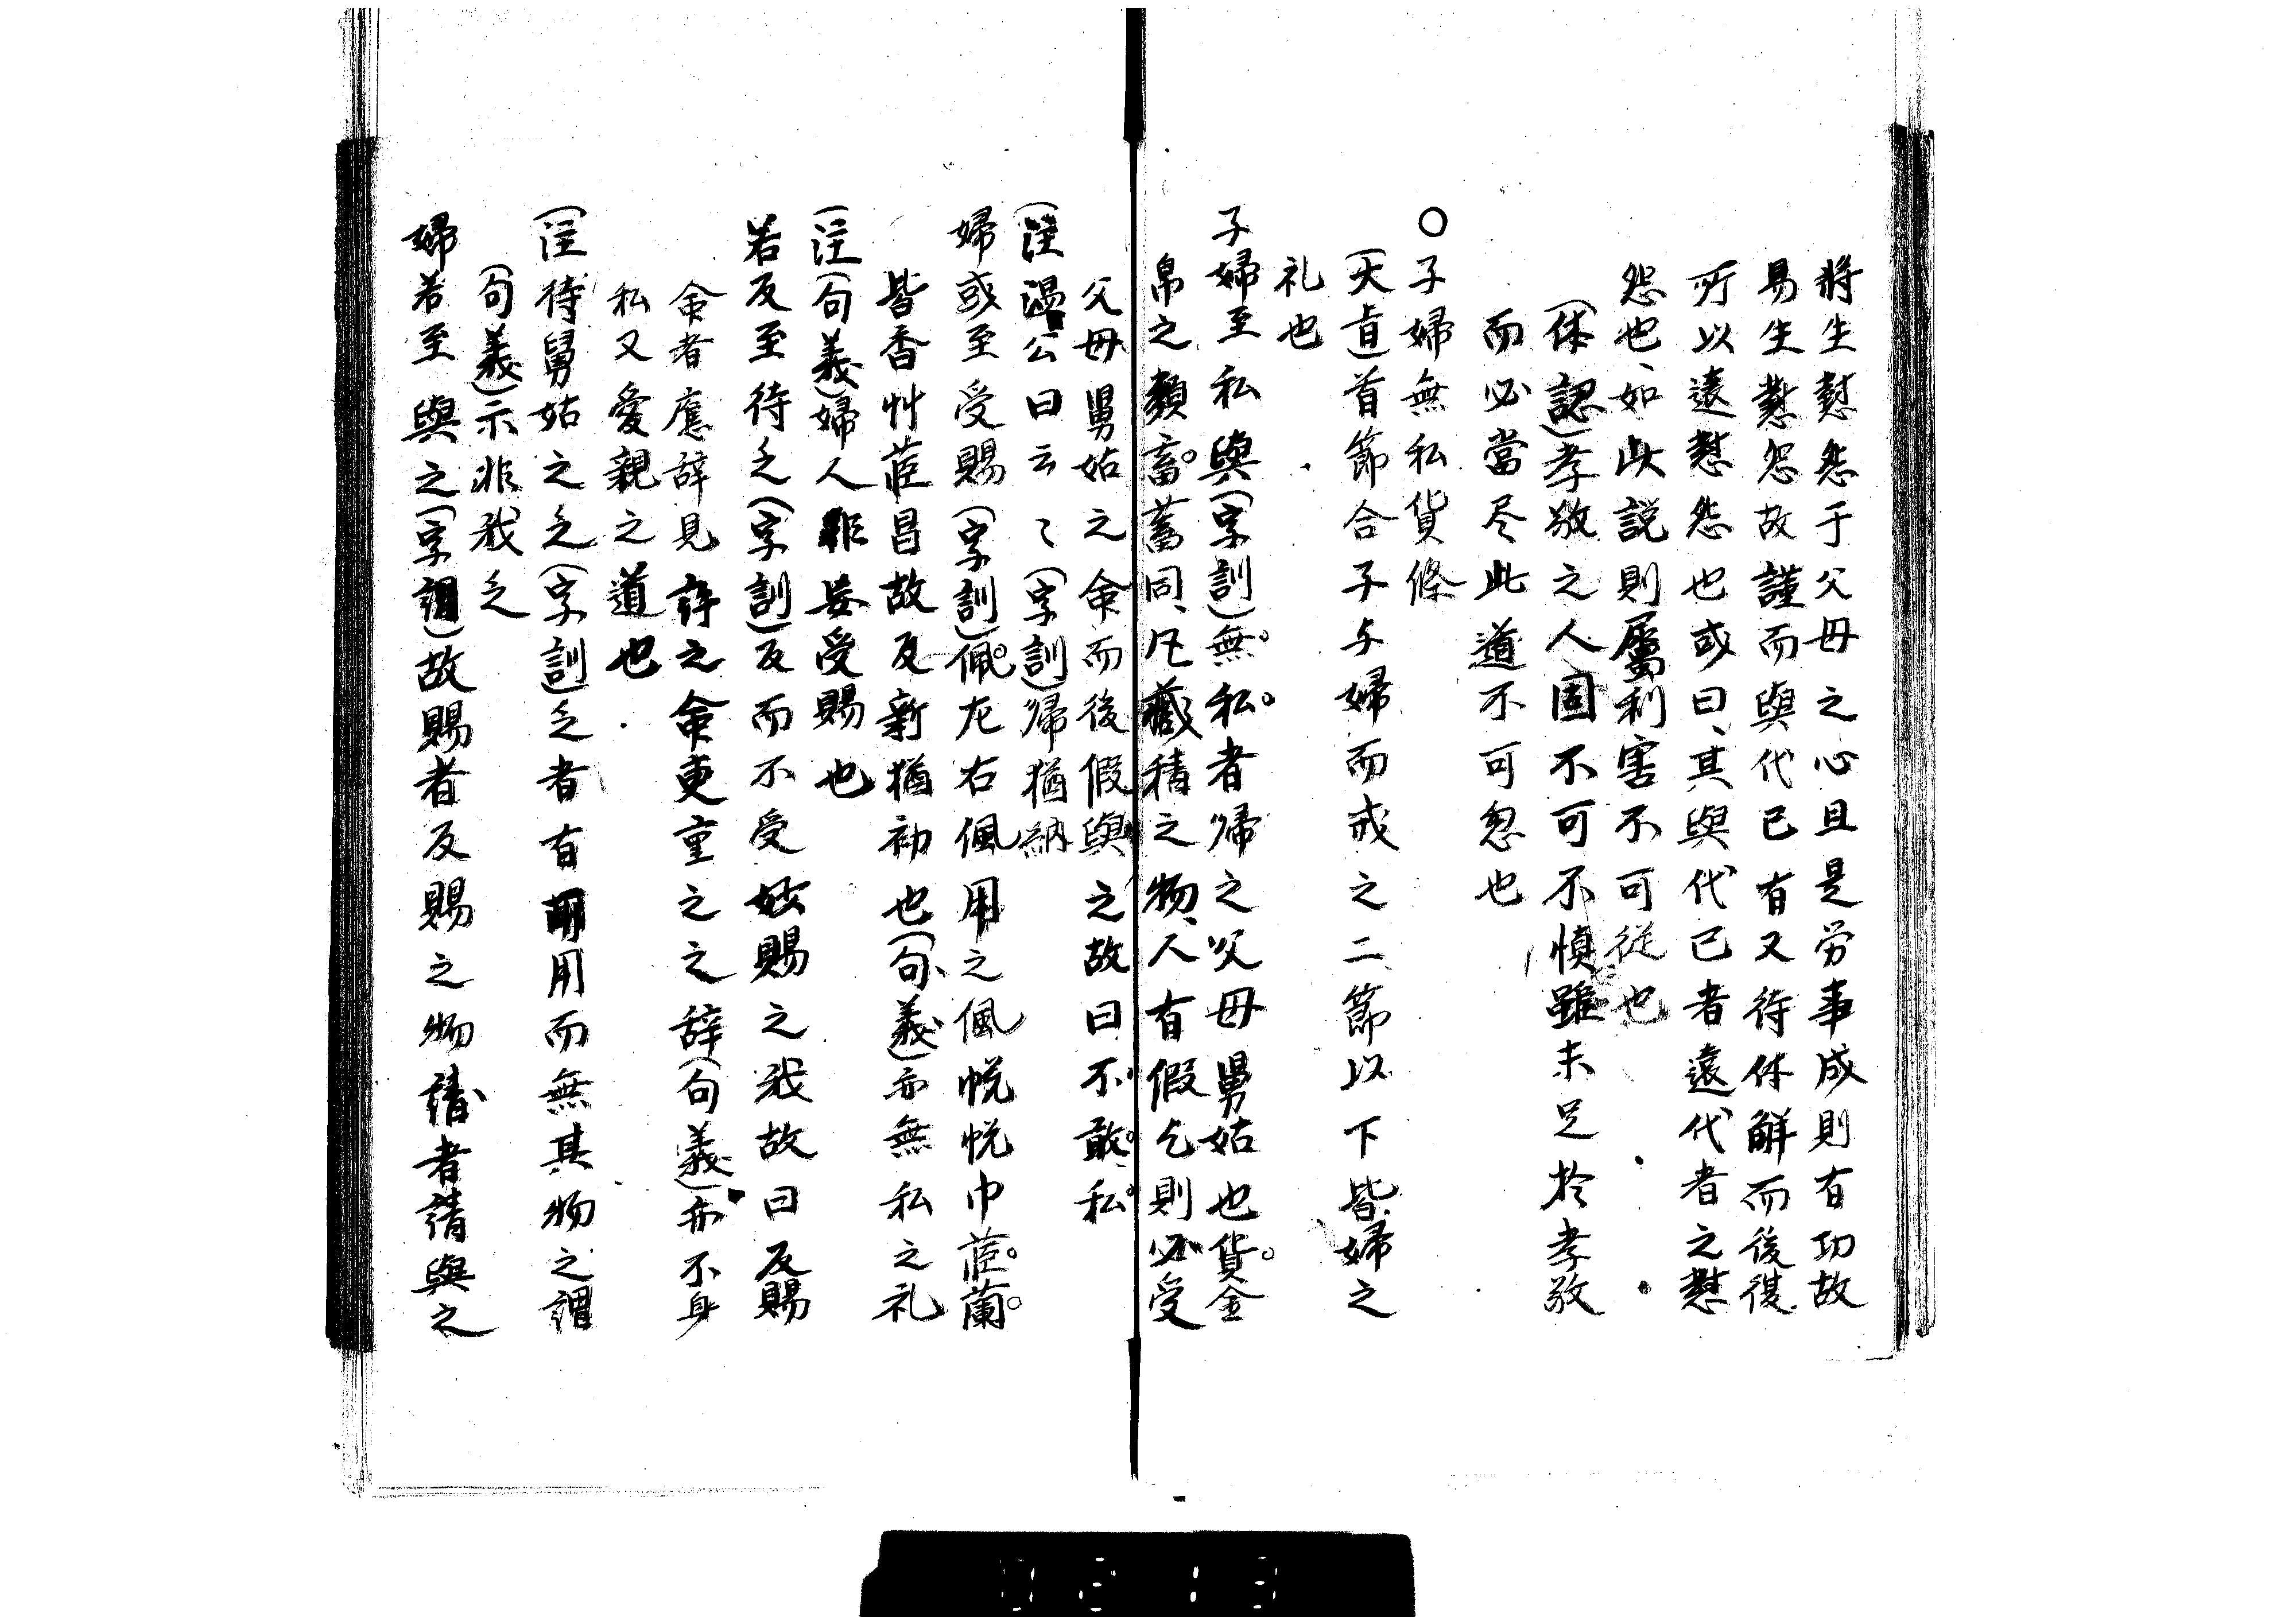 將生懟怨于父母之心且是労事成則有功故
易生懟怨故謹而與代已有又待休解而後復
所以遠懟怨也或曰、其與代已者遠代者之懟
怨也、如此説則屬利害不可從也
(体認)孝敬之人固不可不慎雖未足於孝敬
而必當尽此道不可忽也
○子婦無私貨條
(大旨)首節合子与婦而戒之二節以下皆婦之
礼也
子婦至私與(字訓)無。私。者帰之父母舅姑也貨。金
帛之類畜。蓄同、凡藏積之物、人有假乞則必受
父母舅姑之命而後假與之故曰不敢。私。
(注温公曰云々(字訓)帰猶納
婦或至受賜(字訓)佩。左右佩用之佩帨帨巾茝。蘭。
皆香艸茝昌故反新猶初也(句義)亦無私之礼
(注(句義)婦人非妄受賜也
若反至待乏(字訓)反而不受如賜之我故曰反賜
命者應辞見許之命更重之之辞(句義)亦不身
私又愛親之道也
(注待舅姑之乏(字訓)乏者有用而無其物之謂
(句義)示非我乏
婦若至與之(字訓)故賜者反賜之物請者請與之